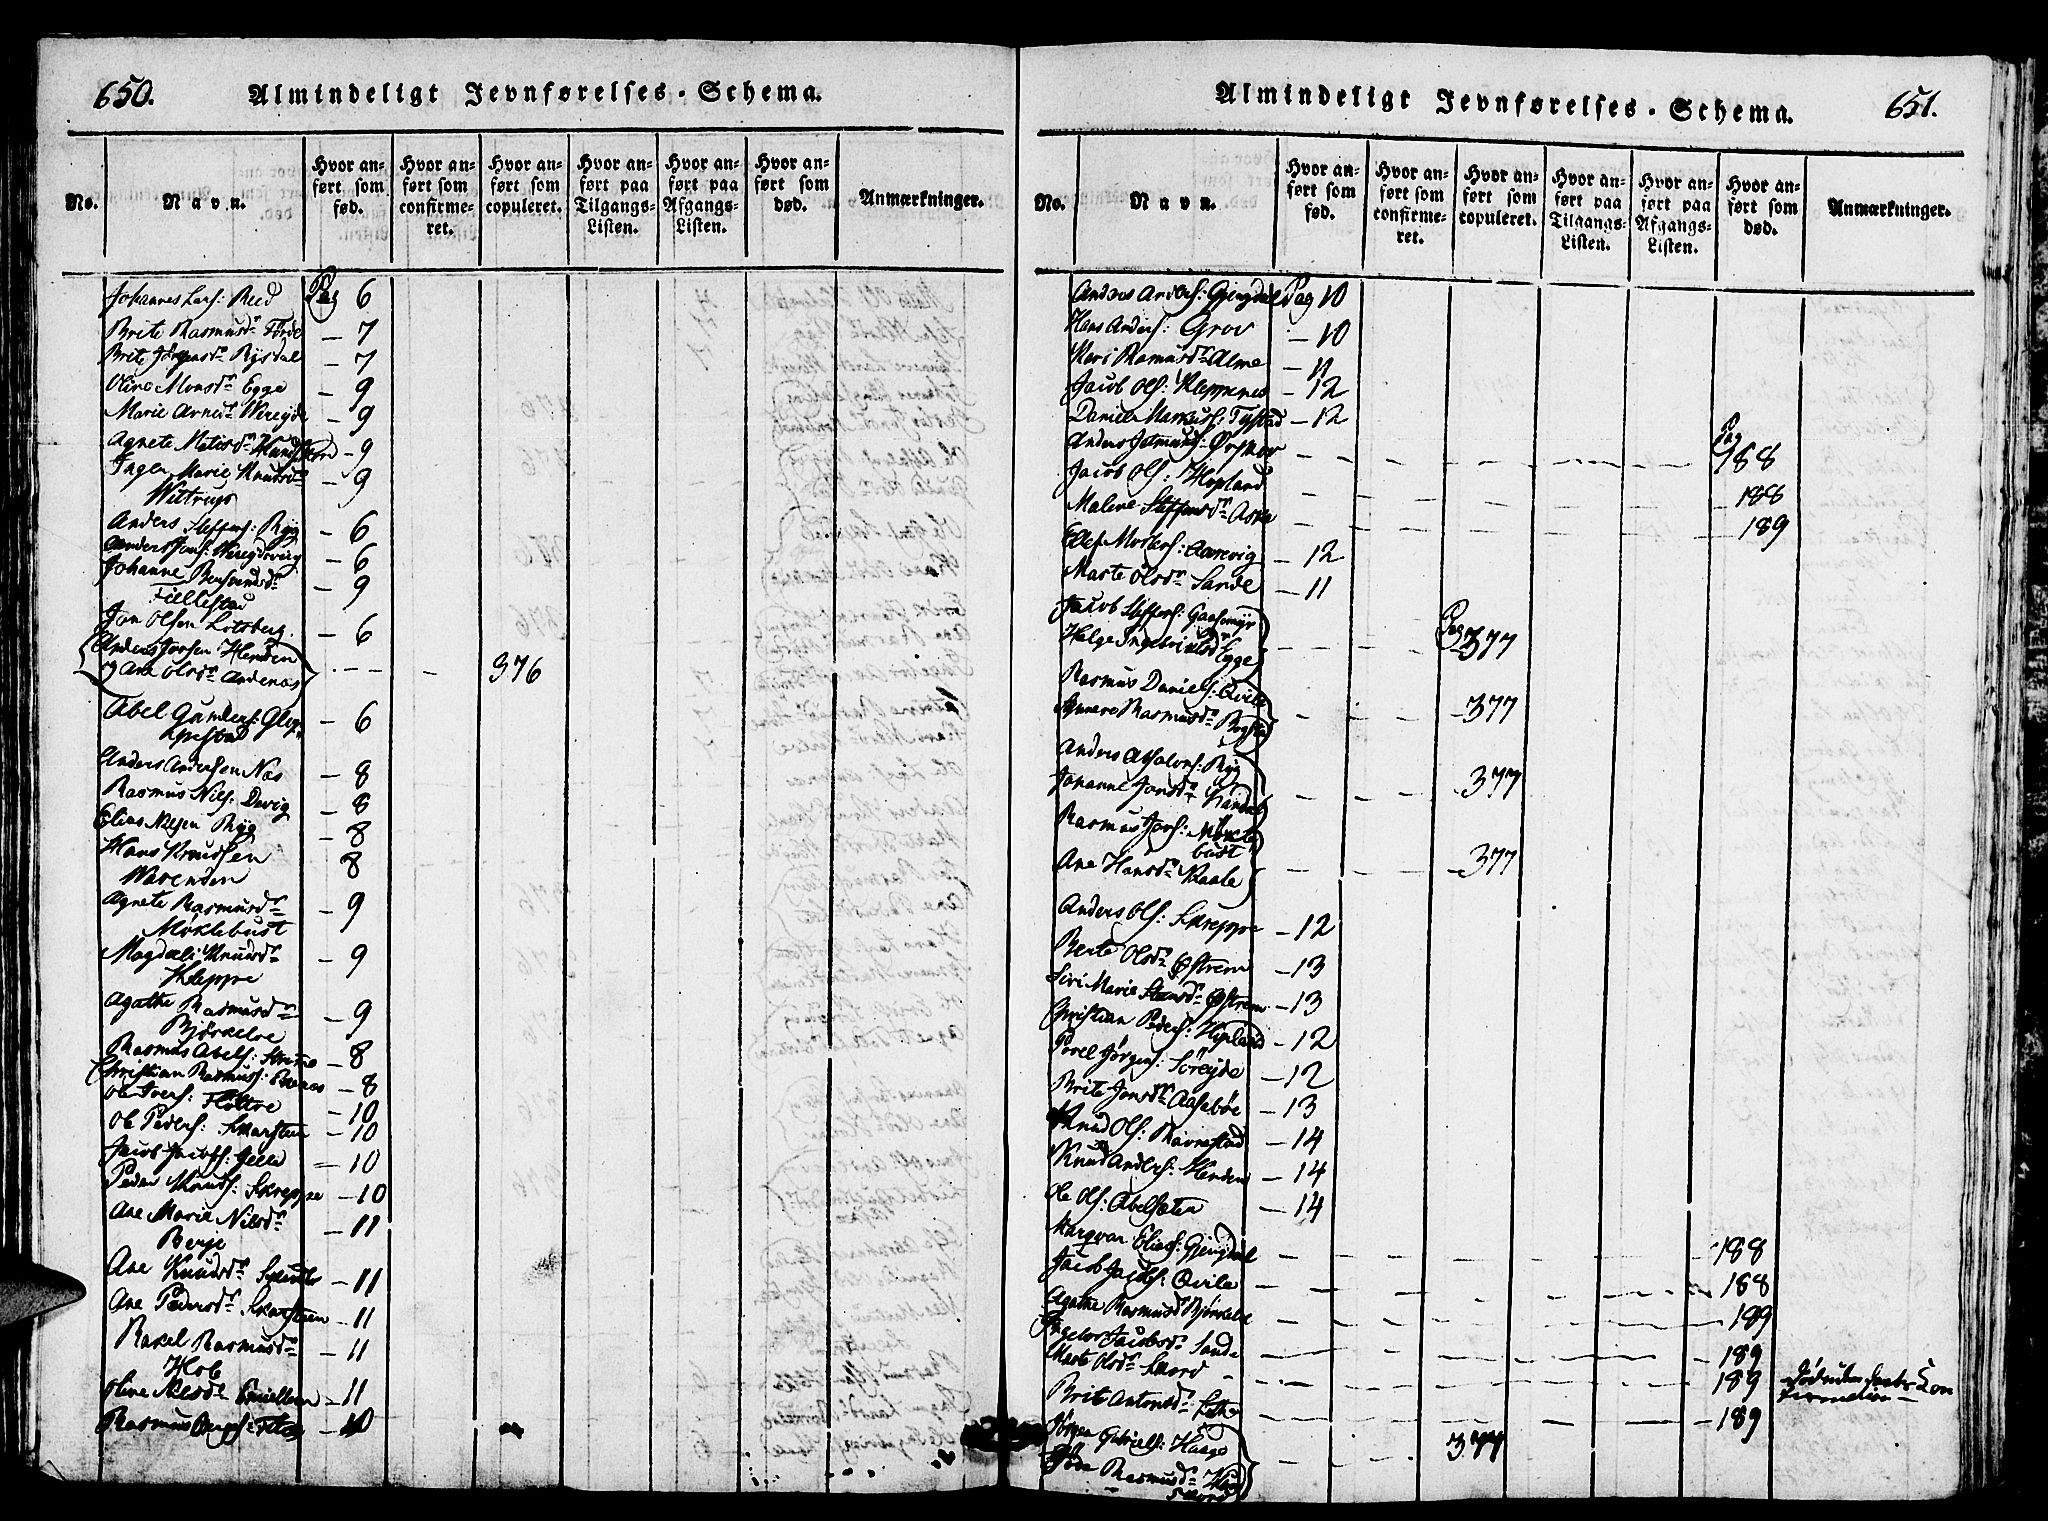 650.
Almindeligt Jevnførelses-Schema.
No.
Navn.
Hvor anført som fød.
Hvor anført som confirmeret.
Hvor anført som copuleret.
Hvor anført paa Tilgangs-Listen.
Hvor anført paa Afgangs-Listen.
Hvor anført som død.
Anmærkninger.
Johannes Lars: Reed Pag 6
Brite Rasmusdr Førde - 7
Brite Jørgensdr Rysdal - 7
Oline Monsdr Egge - 9
Marie Arnedr Wereide - 9
Agnete Matisdr - 9
Inger Marie Knudsdr - 9
Anders Steffens: Ryg - 6
Anders Jens: - 6
Johanne - 9
Fillestad
Jon Olsen Lotsberg. - 6
Anders Joesen Henden
og Ane Olsdr Andenæs - - - 376
Abel Gunders: - 6
Anders Andersen Næs - 8
Rasmus Nils: Devig - 8
Elias Nilsen Ryg - 8
Hans Knudsen 8
Warenden
Agnete Rasmusdr - 9
Møklebust
Magdali Knudsdr - 9
Kleppe
Agathe Rasmusdr - 9
Bjørkeloe
Rasmus Abels: - 8
Christian Rasmus: - 8
Ole Ivers: Fløttre - 10
Ole Peders: Skarsteen - 10
Jacob Jacobs: - 10
Peder Knuds: Skreppe - 10
Ane Marie Nilsdr - 11
Berje
Ane Knudsdr - 11
Ane Pedersdr Skarsteen - 11
Rakel Rasmusdr - 11
Hob
Oline Nilsdr - 11
Rasmus - 10
Almindeligt Jevnførelses-Schema.
651.
No.
Navn.
Hvor anført som fød.
Hvor anført som confirmeret.
Hvor anført som copuleret.
Hvor anført paa Tilgangs-Listen.
Hvor anført paa Afgangs-Listen.
Hvor anført som død.
Anmærkninger.
Anders Anders: Gjengdal Pag 10
Hans Anders: Grov - 10
Kari Rasmusdr Alme - 11
Jacob Ols: Kleppenes - 12
Daniel Markus: Tystad - 12
Anders Ørskov - - - - - Pag 188
Jacob Ols: Hopland - - - - - 188
Malene Steffensdr Aske - - - - - 189
Ellef Aarevig - 12
Marte Olsdr Sande - 11
Jacob Steffens: Gaasemyr
Helge Egge - - - Pag 377
Rasmus Daniels: Qvile
Rasmusdr - - - 377
Anders Absalons: Ryg
Johanne Jonsdr - - - 377
Rasmus Jons: Møkle
bust
Ane Hansdr Kaale - - - 377
Anders Ols: Skreppe - 12
Berte Olsdr Østrem - 13
Siri Marie Østrem - 13
Christian Peders: Hopland - 12
Povel Jørgens: Søreide - 12
Brite Jonsdr Aasebøe - 13
Knud Ols: Ravnestad - 14
Knud Anders: Henden - 14
Ole Ols: Abelsæter - 14
Elias: Gjengdal - - - - 188
Jacob Jacobs: Qvile - - - - 188
Agathe Rasmusdr Bjørkeloe - - - - 189
Ingebor Jacobsdr Sande - - - - 189
Marte Olsdr - - - - 189
Brite Antonsdr - - - - 189
Jørgen Gabriels: Hauge
Rasmusdr - - 377